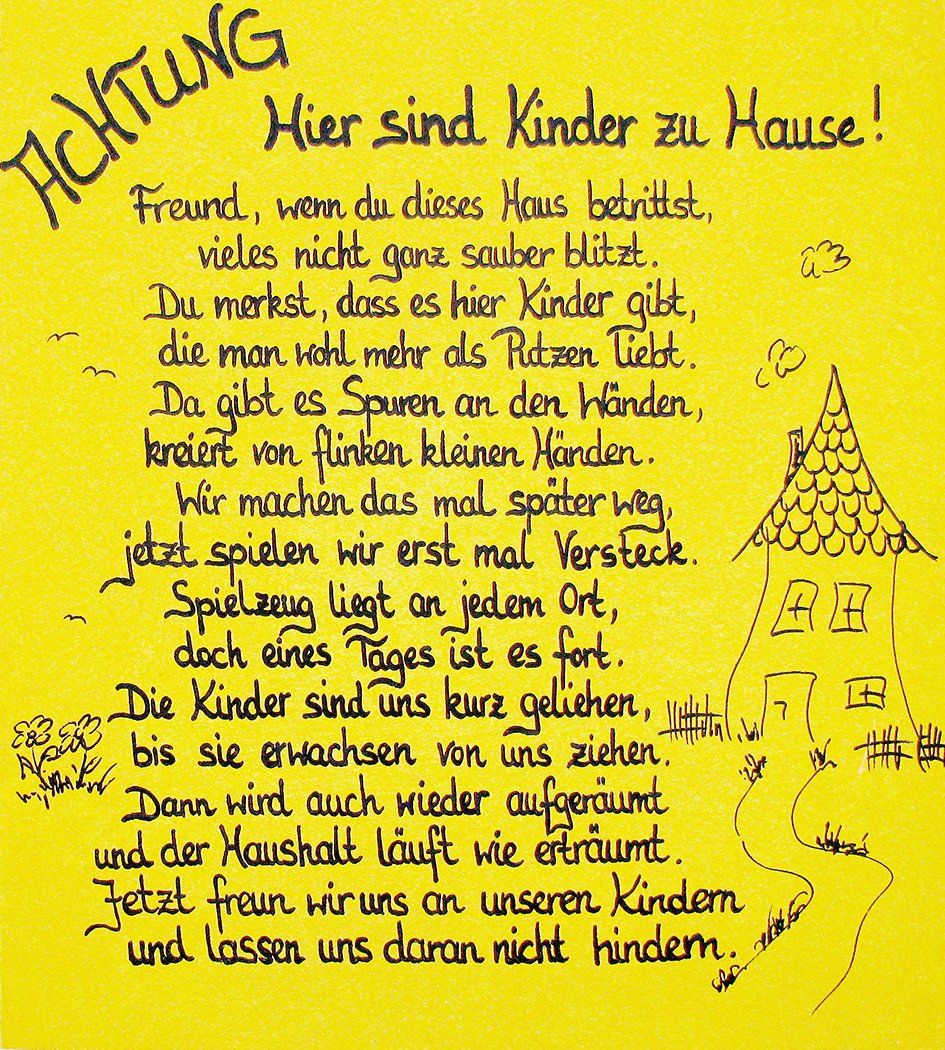 ACHTUNG
Hier sind Kinder zu Hause!
Freund, wenn du dieses Haus betrittst,
vieles nicht ganz sauber blitzt.
Du merkst, dass es hier Kinder gibt,
die man wohl mehr als Putzen liebt.
Da gibt es Spuren an den Wänden,
kreiert von flinken kleinen Händen.
Wir machen das mal später weg,
jetzt spielen wir erst mal Versteck.
Spielzeug liegt an jedem Ort,
doch eines Tages ist es fort.
Die Kinder sind uns kurz geliehen,
bis sie erwachsen von uns ziehen.
Dann wird auch wieder aufgeräumt
und der Haushalt läuft wie erträumt.
Jetzt freun wir uns an unseren Kindern
und lassen uns daran nicht hindern.